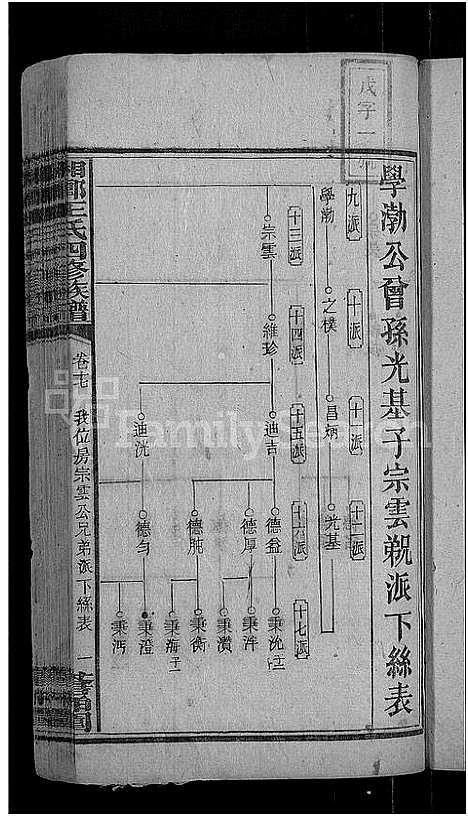 戊字一號
學渤公曾孫光基子宗雲覜派下絲表
九派
十派
十一派
十二派
學渤
之樸
昌炳
光基
十三派
十四派
十五派
十六派
十七派
宗雲
維珍
迪吉
迪洸
德益
德厚
德肫
德勻
秉沈
秉泮
秉瀆
秉衡
秉海
秉澄
秉沔
湘鄉王氏四修族譜
卷十七 我位房宗雲公兄弟派下絲表 一
FamilySearch